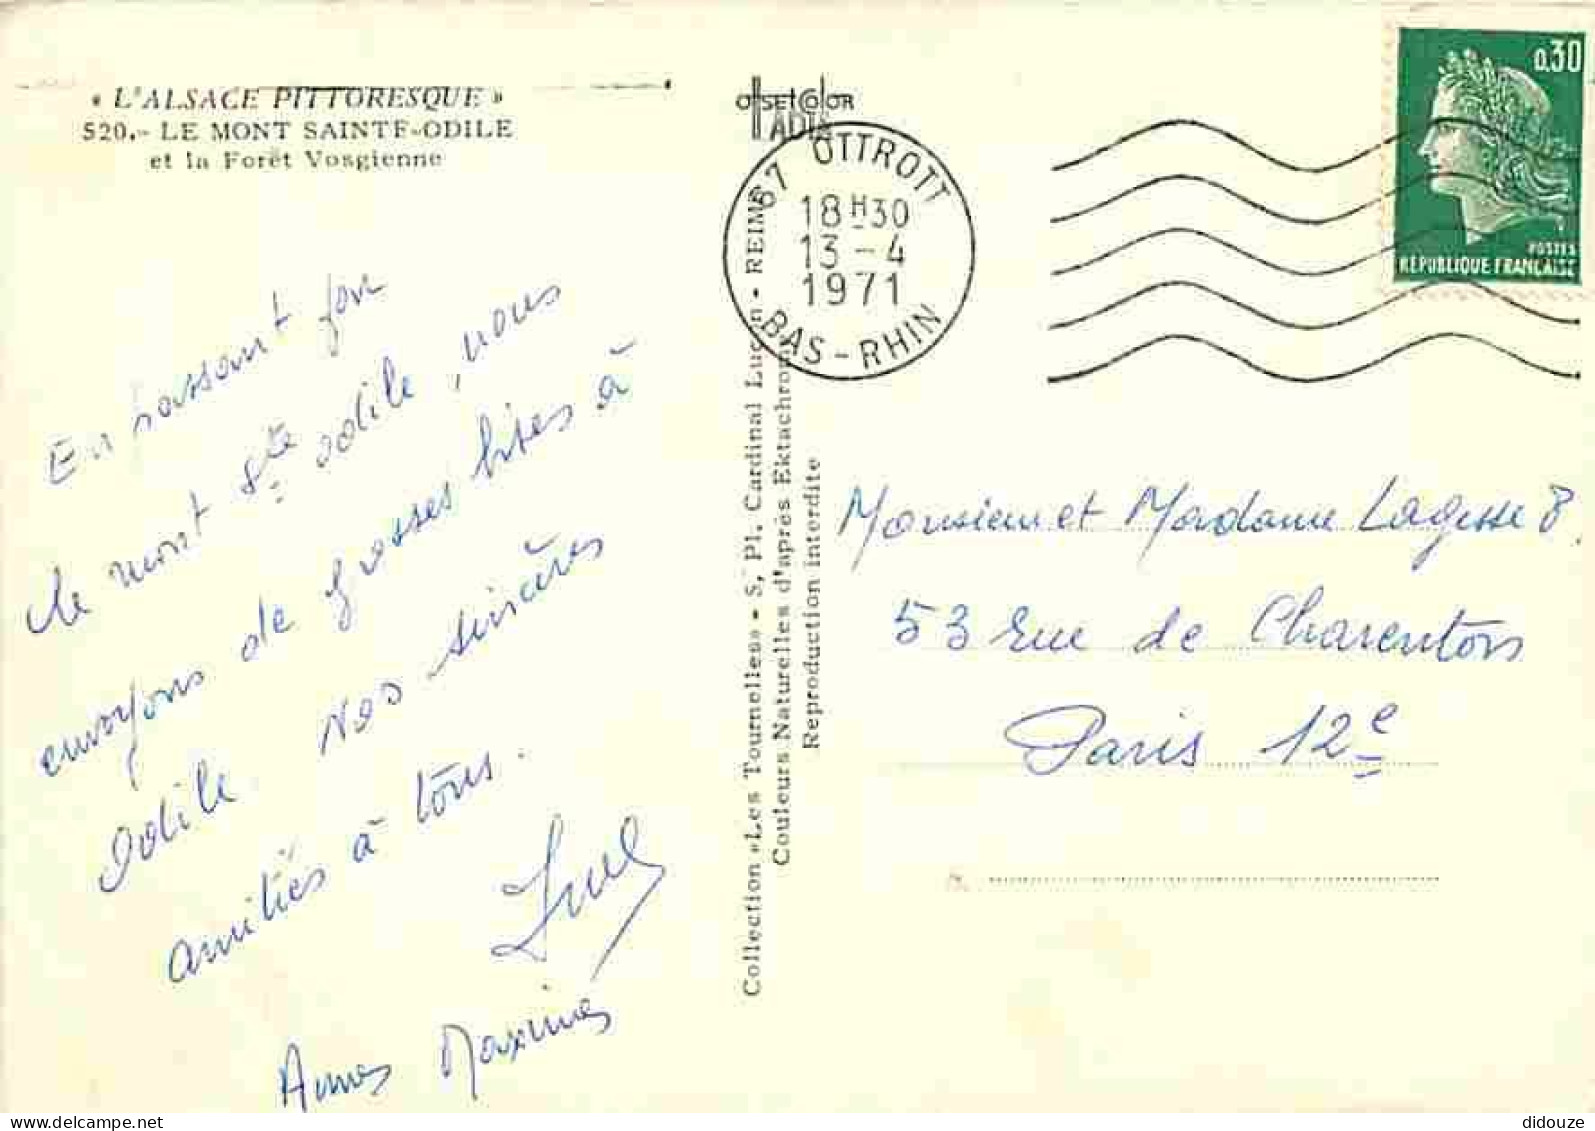 « L'ALSACE PITTORESQUE »
520.- LE MONT SAINTE-ODILE
et la Forêt Vosgienne
OFFSETCOLOR
PARIS
67 OTTROTT
18H30
13-4
1971
BAS-RHIN
0,30
POSTES
RÉPUBLIQUE FRANÇAISE
En passant par
le mont Ste odile, nous
envoyons de grosses bises à
Odile. Nos sincères
amitiés à tous.
Collection «Les Tournelles» - 5, Pl. Cardinal Luçon - REIMS
Couleurs Naturelles d'après Ektachrome
Reproduction interdite
Monsieur et Madame Lagesse
53 rue de Charenton
Paris 12e
didouze